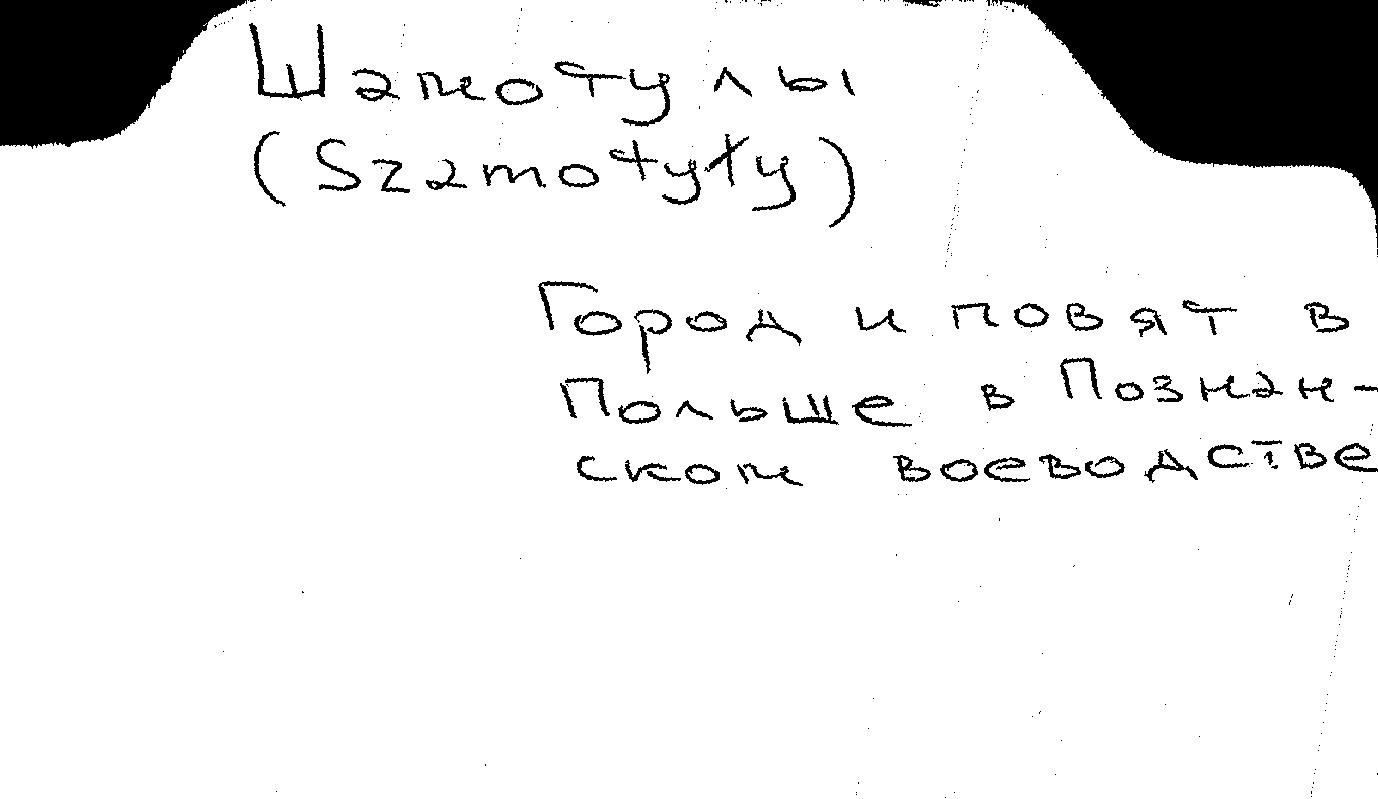 Шамотулы
(Szamotuły)
Город и повят в
Польше в Познан-
ском воеводстве